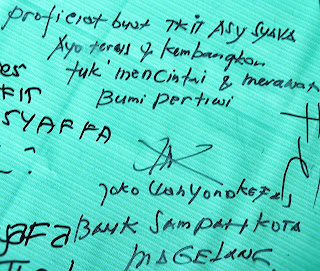 Proficiat buat TKIT ASY SYAFA
Ayo terus & kembangkan
tuk' mencintai & merawat
Bumi pertiwi
FIT
SYAFFA
Joko Wahyono
Bank Sampah KOTA
MAGELANG